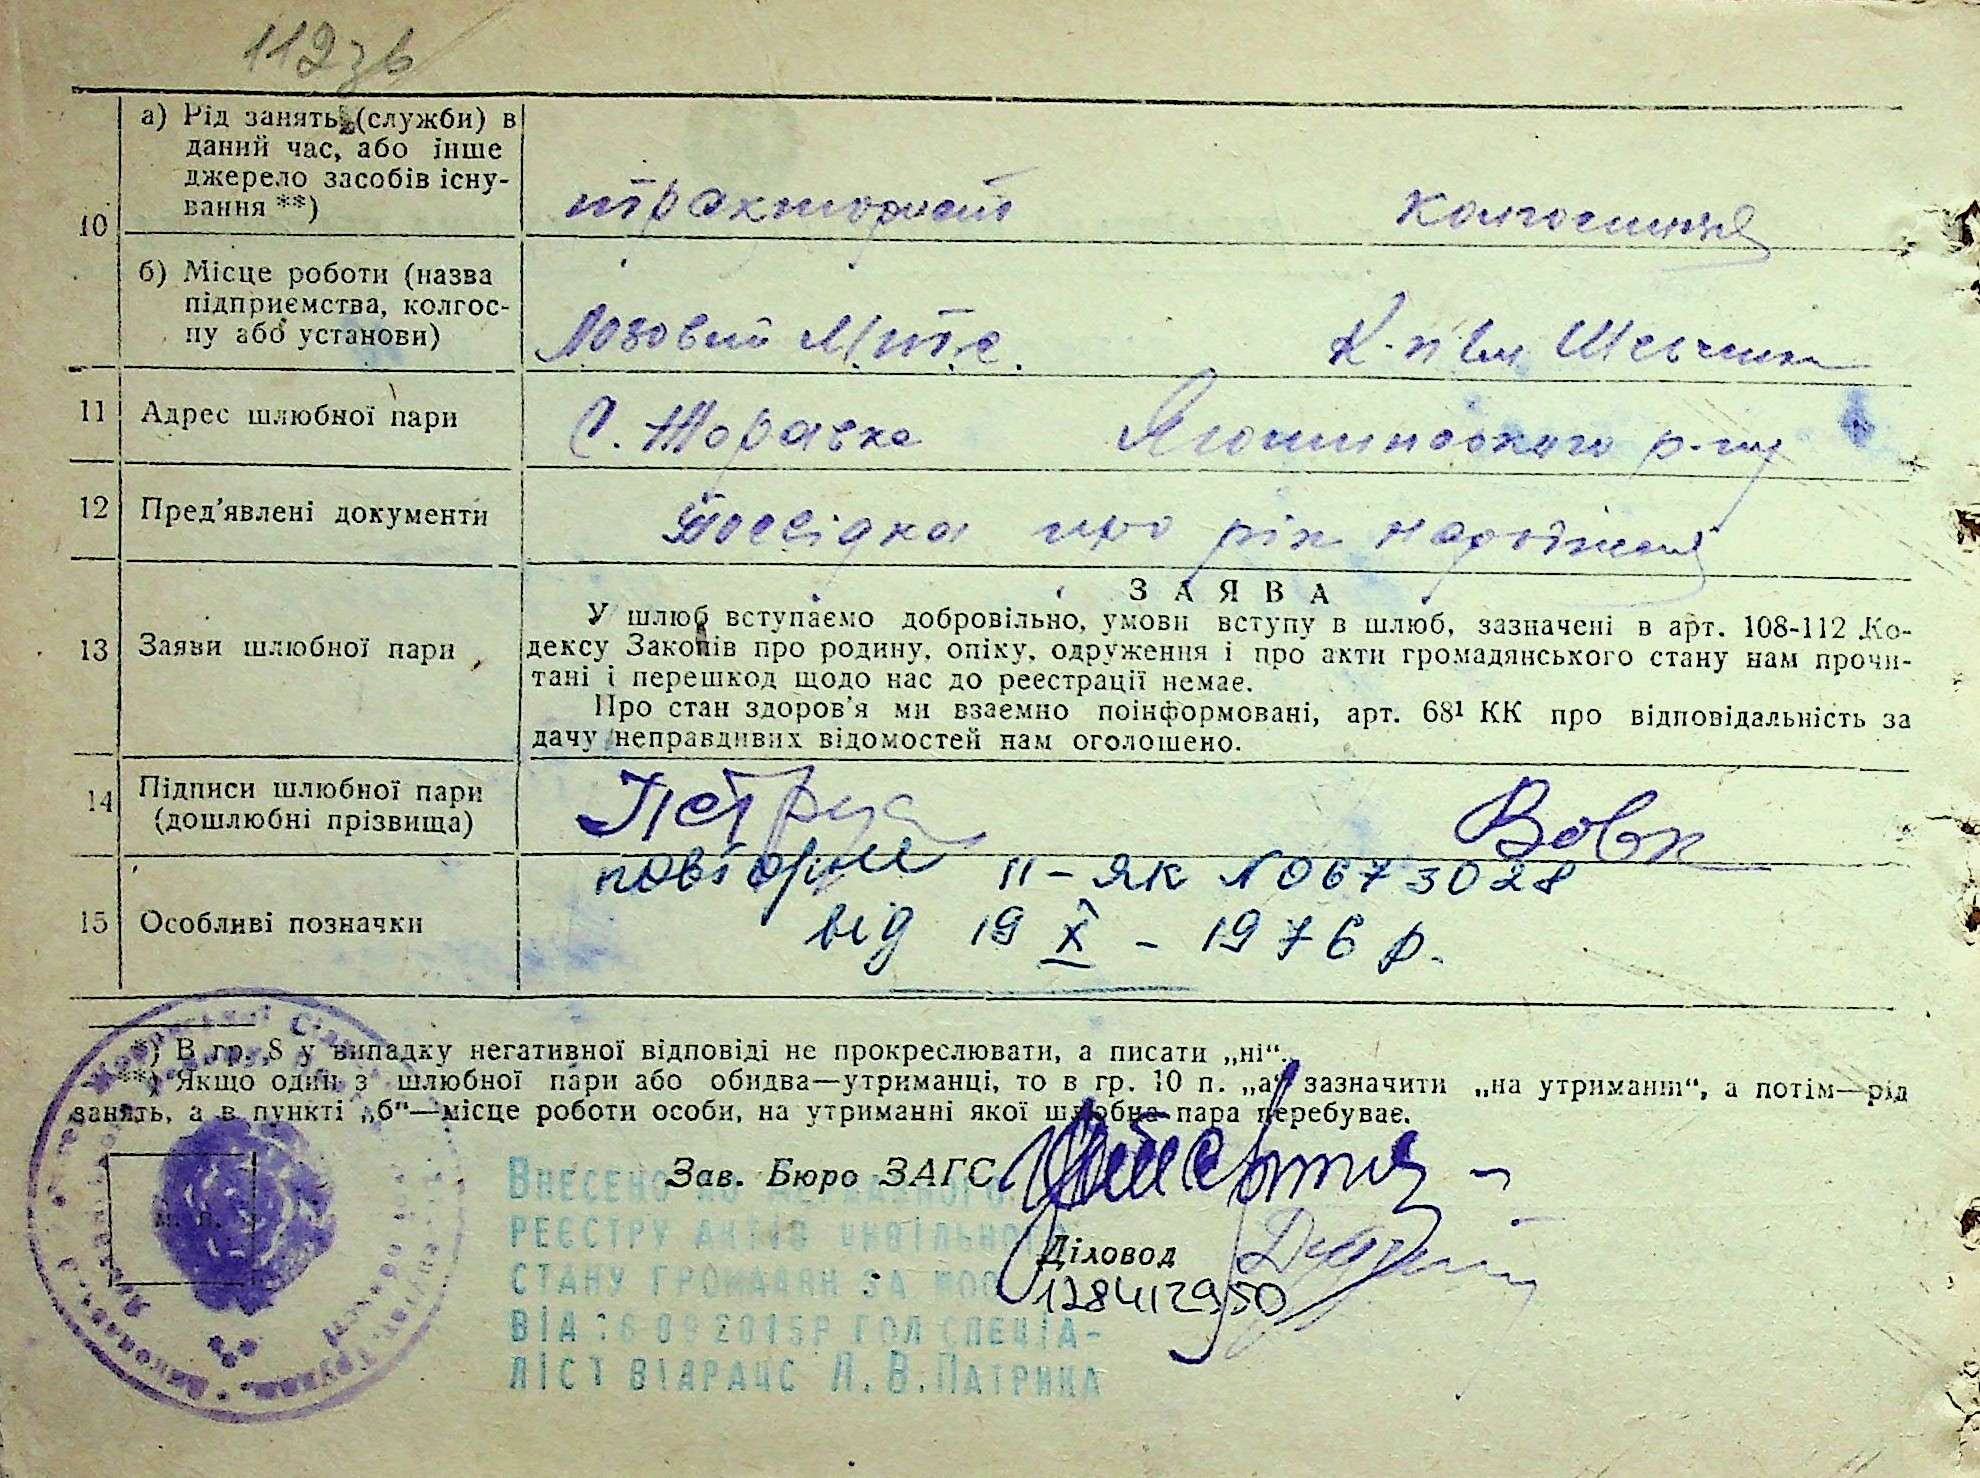 112зв
а) Рід занять (служби) в
даний час, або інше
джерело засобів існу-
вання **)
10
тракторист
колгоспниця
б) Місце роботи (назва
підприємства, колгос-
пу або установи)
Лозовий М.Т.С.
К-п ім. Шевченка
11
Адрес шлюбної пари
С. Жоравка Яготинського р-ну
12
Пред'явлені документи
Посвідка про рік народження
13
Заяви шлюбної пари
ЗАЯВА
У шлюб вступаємо добровільно, умови вступу в шлюб, зазначені в арт. 108-112 Ко-
дексу Законів про родину, опіку, одруження і про акти громадянського стану нам прочи-
тані і перешкод щодо нас до реєстрації немає.
Про стан здоров'я ми взаємно поінформовані, арт. 68¹ КК про відповідальність за
дачу неправдивих відомостей нам оголошено.
14
Підписи шлюбної пари
(дошлюбні прізвища)
Вовк
15
Особливі позначки
повторне II-ЯК №0673028
від 19 X - 1976 р.
*) В гр. 8 у випадку негативної відповіді не прокреслювати, а писати „ні“.
**) Якщо один з шлюбної пари або обидва—утриманці, то в гр. 10 п. „а“ зазначити „на утриманні“, а потім—рід
занять, а в пункті „б“—місце роботи особи, на утриманні якої шлюбна пара перебуває.
М. П.
Зав. Бюро ЗАГС
Діловод
128412950
Внесено до Державного
реєстру актів цивільного
стану громадян за №00
від 16 09 2015р гол спеціа-
ліст відрацс Л.В.Патрика